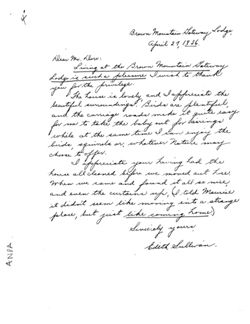 Brown Mountain Gateway Lodge
April 29, 1936
Dear Mr. Dorr:
Living at the Brown Mountain Gateway
Lodge is such a pleasure I wish to thank
you for the privilege.
The house is lovely and I appreciate the
beautiful surroundings. Birds are plentiful,
and the carriage roads make it quite easy
for me to take the baby out for airings
while at the same time I can enjoy the
birds, squirrels or, whatever Nature may
choose to offer.
I appreciate your having had the
house all cleaned before we moved out here.
When we came and found it all so nice,
and even the curtains up, I told Maurice
it didn't seem like moving into a strange
place, but just like coming home.
Sincerely yours
Edith Sullivan.
ANPA